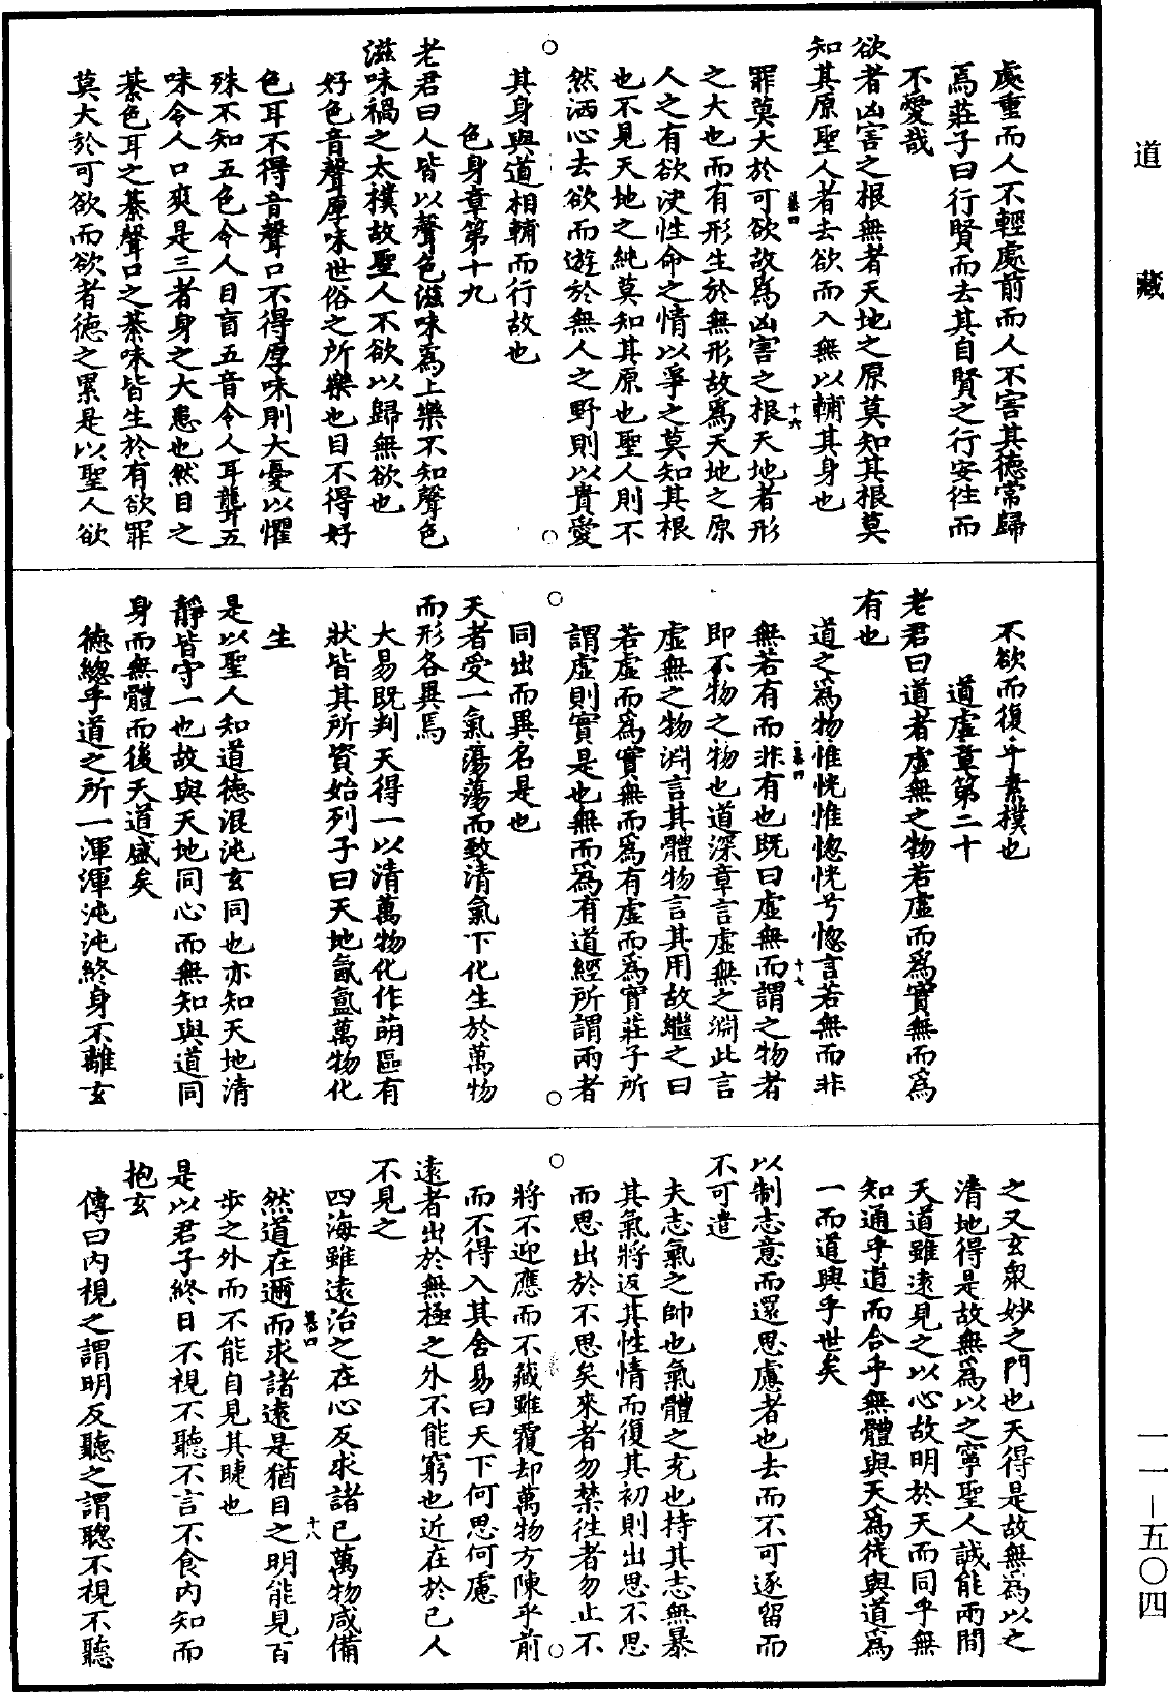 道藏
處重而人不輕處前而人不害其德常歸
焉莊子曰行賢而去其自賢之行安往而
不愛哉
欲者凶害之根無者天地之原莫知其根莫
知其原聖人者去欲而入無以輔其身也
罪莫大於可欲故為凶害之根天地者形
之大也而有形生於無形故為天地之原
人之有欲決性命之情以爭之莫知其根
也不見天地之純莫知其原也聖人則不
然洒心去欲而遊於無人之野則以貴愛
其身與道相輔而行故也
色身章第十九
老君曰人皆以聲色滋味為上樂不知聲色
滋味禍之太樸故聖人不欲以歸無欲也
好色音聲厚味世俗之所樂也目不得好
色耳不得音聲口不得厚味則大憂以懼
殊不知五色令人目盲五音令人耳聾五
味令人口爽是三者身之大患也然目之
綦色耳之綦聲口之綦味皆生於有欲罪
莫大於可欲而欲者德之累是以聖人欲
不欲而復乎素樸也
道虛章第二十
老君曰道者虛無之物若虛而為實無而為
有也
道之為物惟恍惟惚恍兮惚言若無而非
無若有而非有也既曰虛無而謂之物者
即不物之物也道深章言虛無之淵此言
虛無之物淵言其體物言其用故繼之曰
若虛而為實無而為有虛而為實莊子所
謂虛則實是也無而為有道經所謂兩者
同出而異名是也
天者受一氣蕩蕩而致清氣下化生於萬物
而形各異焉
大易既判天得一以清萬物化作萌區有
狀皆其所資始列子曰天地氤氳萬物化
生
是以聖人知道德混沌玄同也亦知天地清
靜皆守一也故與天地同心而無知與道同
身而無體而後天道盛矣
德總乎道之所一渾渾沌沌終身不離玄
之又玄衆妙之門也天得是故無為以之
清地得是故無為以之寧聖人誠能兩間
天道雖遠見之以心故明於天而同乎無
知通乎道而合乎無體與天為徒與道為
一而道興乎世矣
以制志意而還思慮者也去而不可逐留而
不可遣
夫志氣之帥也氣體之充也持其志無暴
其氣將返其性情而復其初則出思不思
而思出於不思矣來者勿禁往者勿止不
將不迎應而不藏雖覆却萬物方陳乎前
而不得入其舍易曰天下何思何慮
遠者出於無極之外不能窮也近在於己人
不見之
四海雖遠治之在心反求諸己萬物咸備
然道在邇而求諸遠是猶目之明能見百
步之外而不能自見其睫也
是以君子終日不視不聽不言不食內知而
抱玄
傳曰內視之謂明反聽之謂聰不視不聽
一一—五〇四